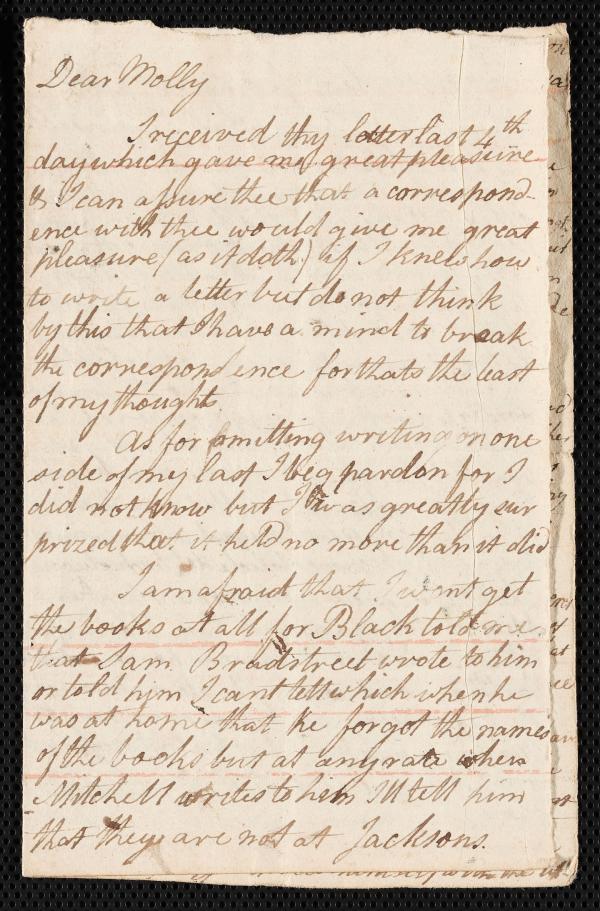 Dear Molly
I received thy letter last 4th
day which gave me great pleasure
& I can assure thee that a correspond-
ence with thee would give me great
pleasure (as it doth) if I knew how
to write a letter but do not think
by this that I have a mind to break
the correspondence for thats the least
of my thought
As for omitting writing on one
side of my last I beg pardon for I
did not know but I was greatly sur
prized that it held no more than it did
I am afraid that I wont get
the books at all for Black told me
that Sam Bradstreet wrote to him
or told him I cant tell which when he
was at home that he forgot the names
of the books but at any rate when
Mitchell writes to him Ill tell him
that they are not at Jacksons.